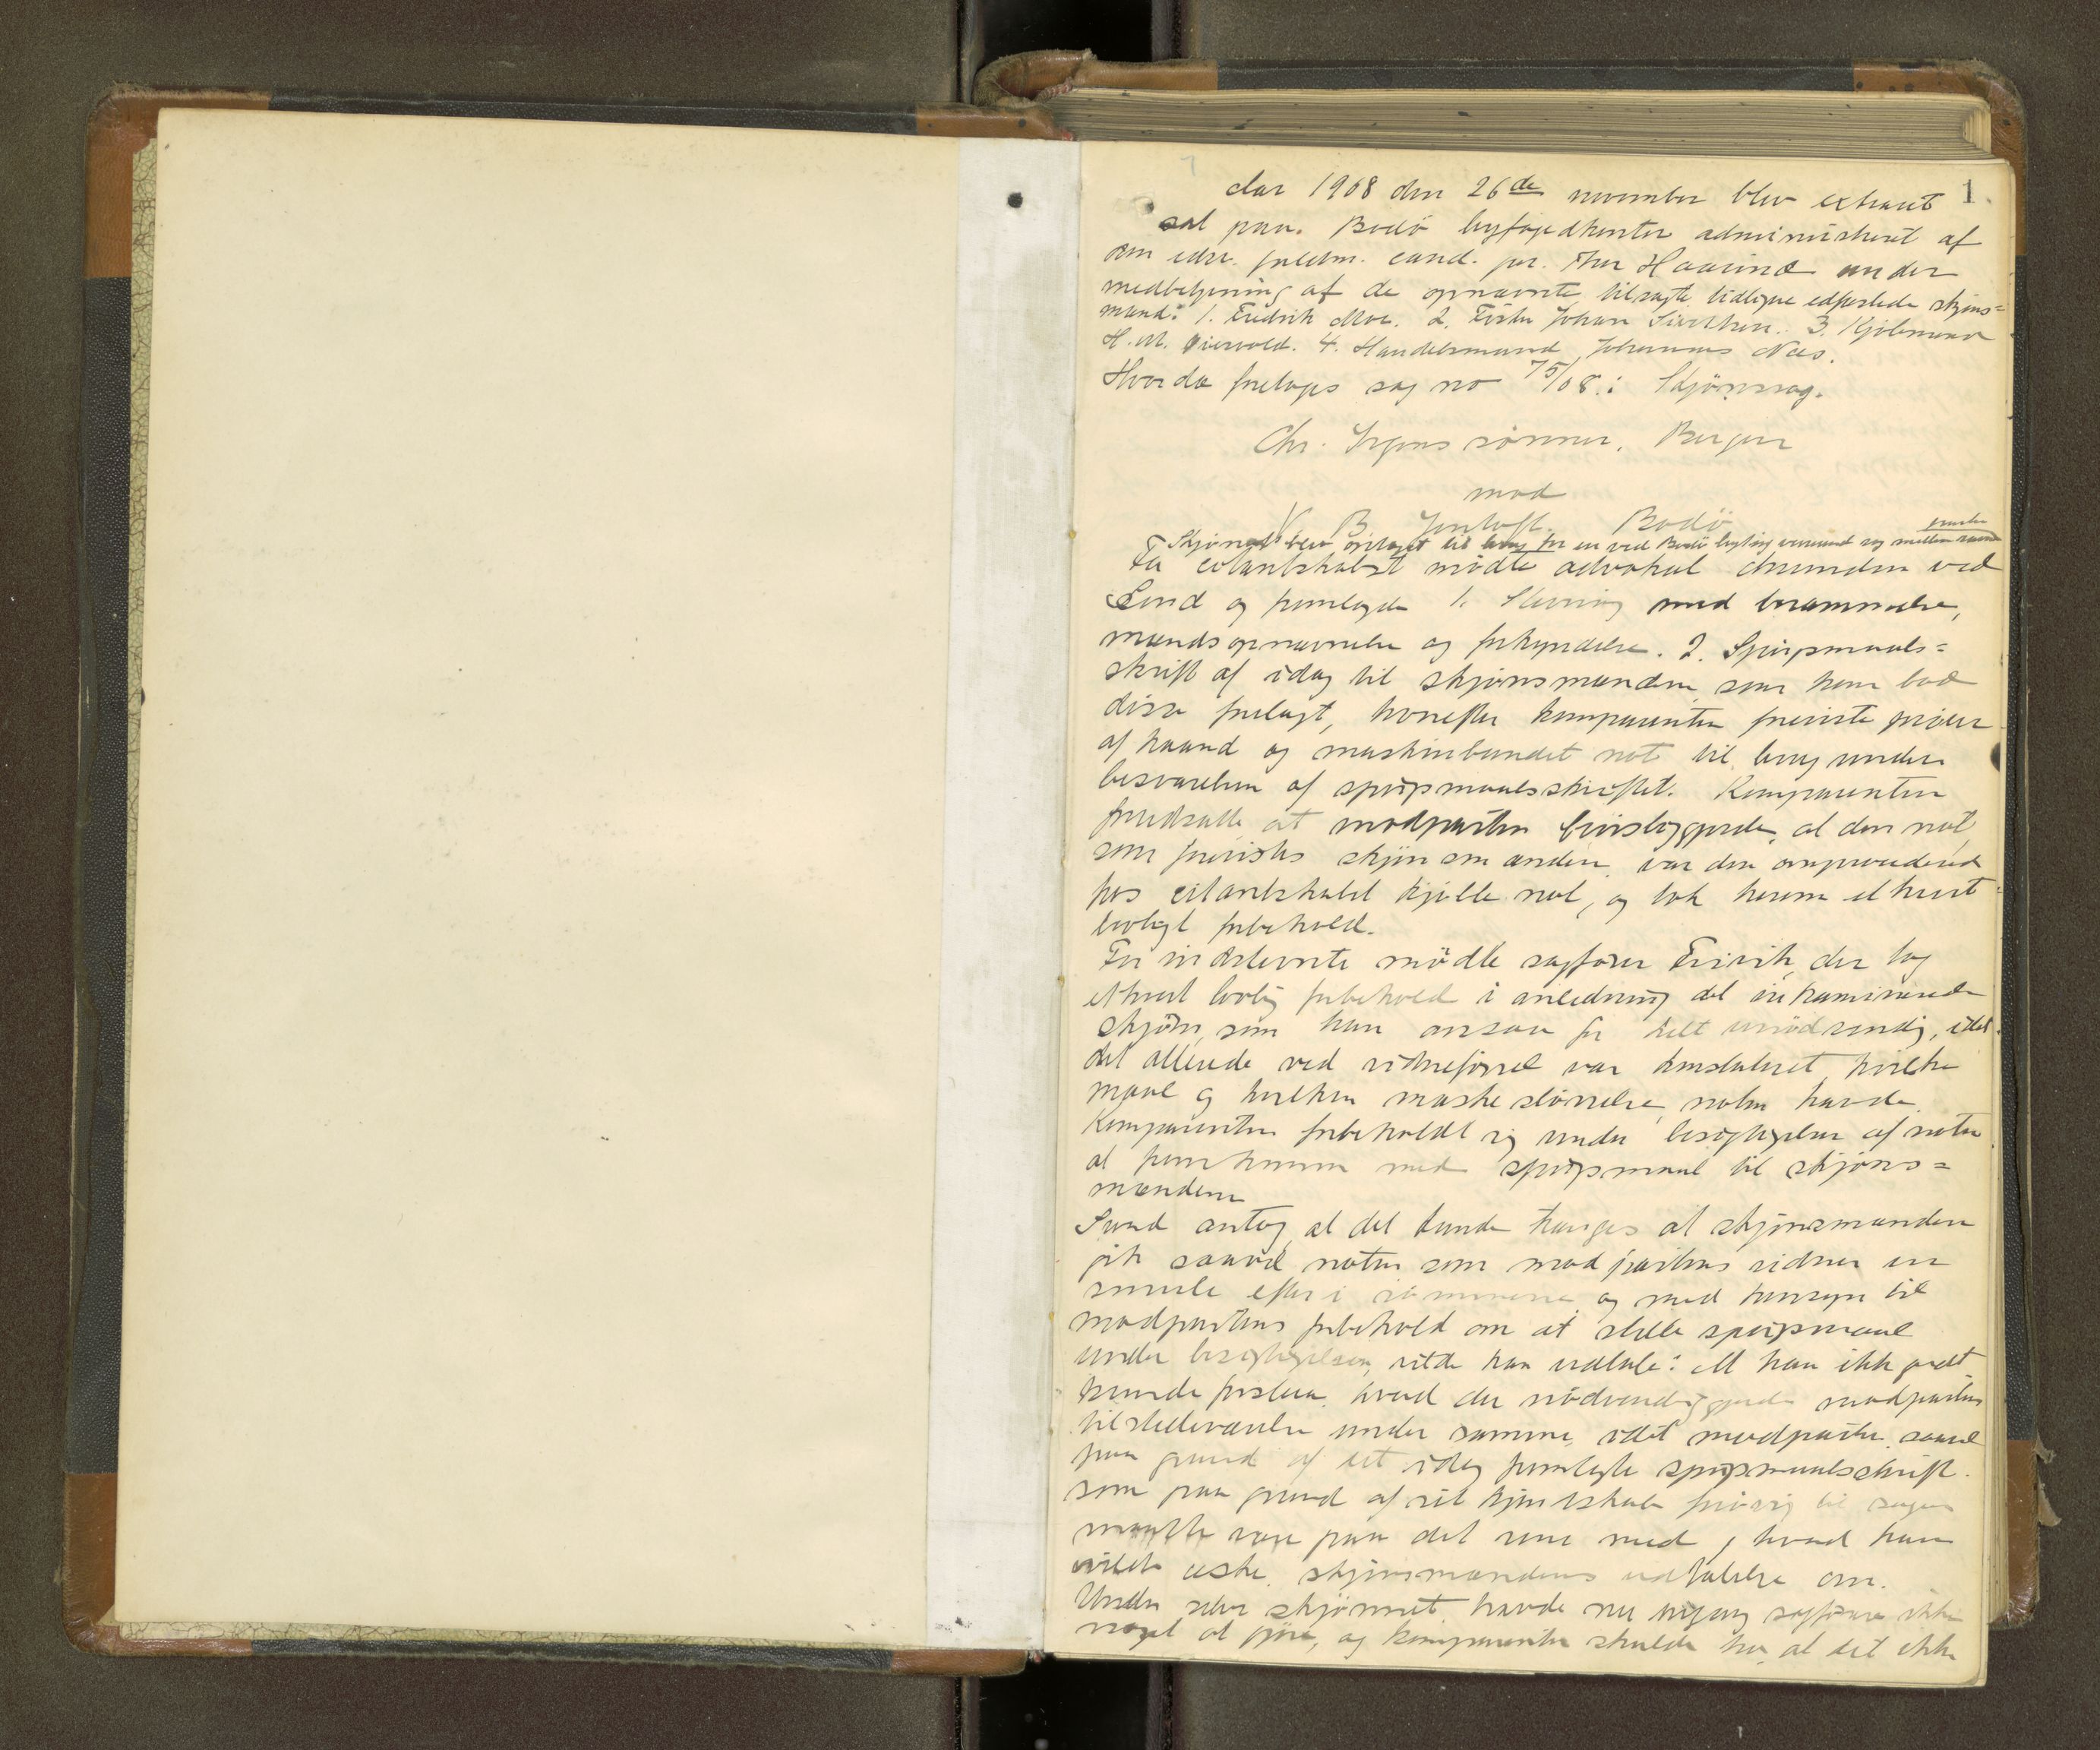 1
Aar 1908 den 26de november blev extraret
sat paa Bodø byfogedkontor administreret af
som edsv. fuldm. cand. jur. Thor Haarind under
medbetjening af de opnævnte, tilsagte, tidligere edfæstede skjøns=
mænd: 1. Fredrik Moe. 2. Fisker Johan Sivertsen. 3. Kjøbmand
H. M. 4. Handelsmand Johannes Næs.
Hvorda foretoges sag no 75/08: Skjønssag.
Chr. Irgens sønner, Bergen
mod
B. Jentoft. Bodø
Skjønnet blev optaget til brug for en ved Bodø byting verserende sag mellem samme parter
For citantskabet mødte advokat Amundsen ved
Sund og fremlagde 1. Stevning med berammelse,
mandsopnævnelse og forkyndelse. 2. Spørgsmaals=
skrift af idag til skjønsmændene, som han bad
disse forelagt, hvorefter komparenten foreviste prøver
af haand og maskinbundet not til brug under
besvarelsen af spørgsmaalsskriftet. Komparenten
forudsatte, at modparten godtgjorde, at den not,
som forevistes skjønsmændene, var den omprocederede
hos citantskabet kjøbte not, og tok herom ethvert
lovligt forbehold.
For indstevnte mødte sagfører der tog
ethvert lovlig forbehold i anledning det
skjøn, som han ansaa for helt unødvendig, idet
det allerede ved vidneførsel var konstateret, hvilke
maal og hvilken maske størrelse noten havde.
Komparenten forbeholdt sig under besigtigelsen af noten
at fremkomme med spørgsmaal til skjøns=
mændene
Sund antog, at det kunde trænges at skjønsmændene
gik saavel noten som modpartens vidner en
smule efter i sømmene og med hensyn til
modpartens forbehold om at stille spørgsmaal
under besigtigelsen, vilde han udtale: At han ikke godt
kunde forstaa, hvad der nødvendiggjorde modpartens
tilstedeværelse under samme, idet modparten saavel
paa grund af det idag fremlagte spørgsmaalsskrift
som paa grund af sit kjendskab forøvrig til sagen
maatte være paa det rene med, hvad han
vilde æske skjønsmændenes udtalelse om.
Under selve skjønnet havde nu sagførere ikke
noget at gjøre, og komparenten skulde tro, at det ikke